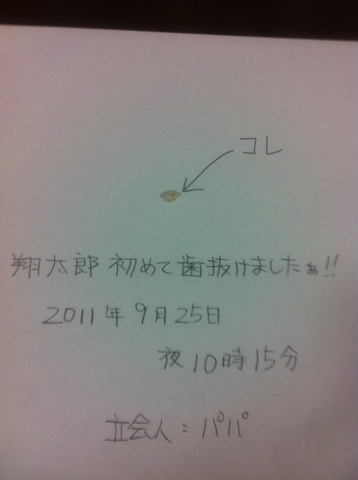 コレ
翔太郎 初めて歯抜けましたぁ!!
2011年9月25日
夜10時15分
立会人:パパ